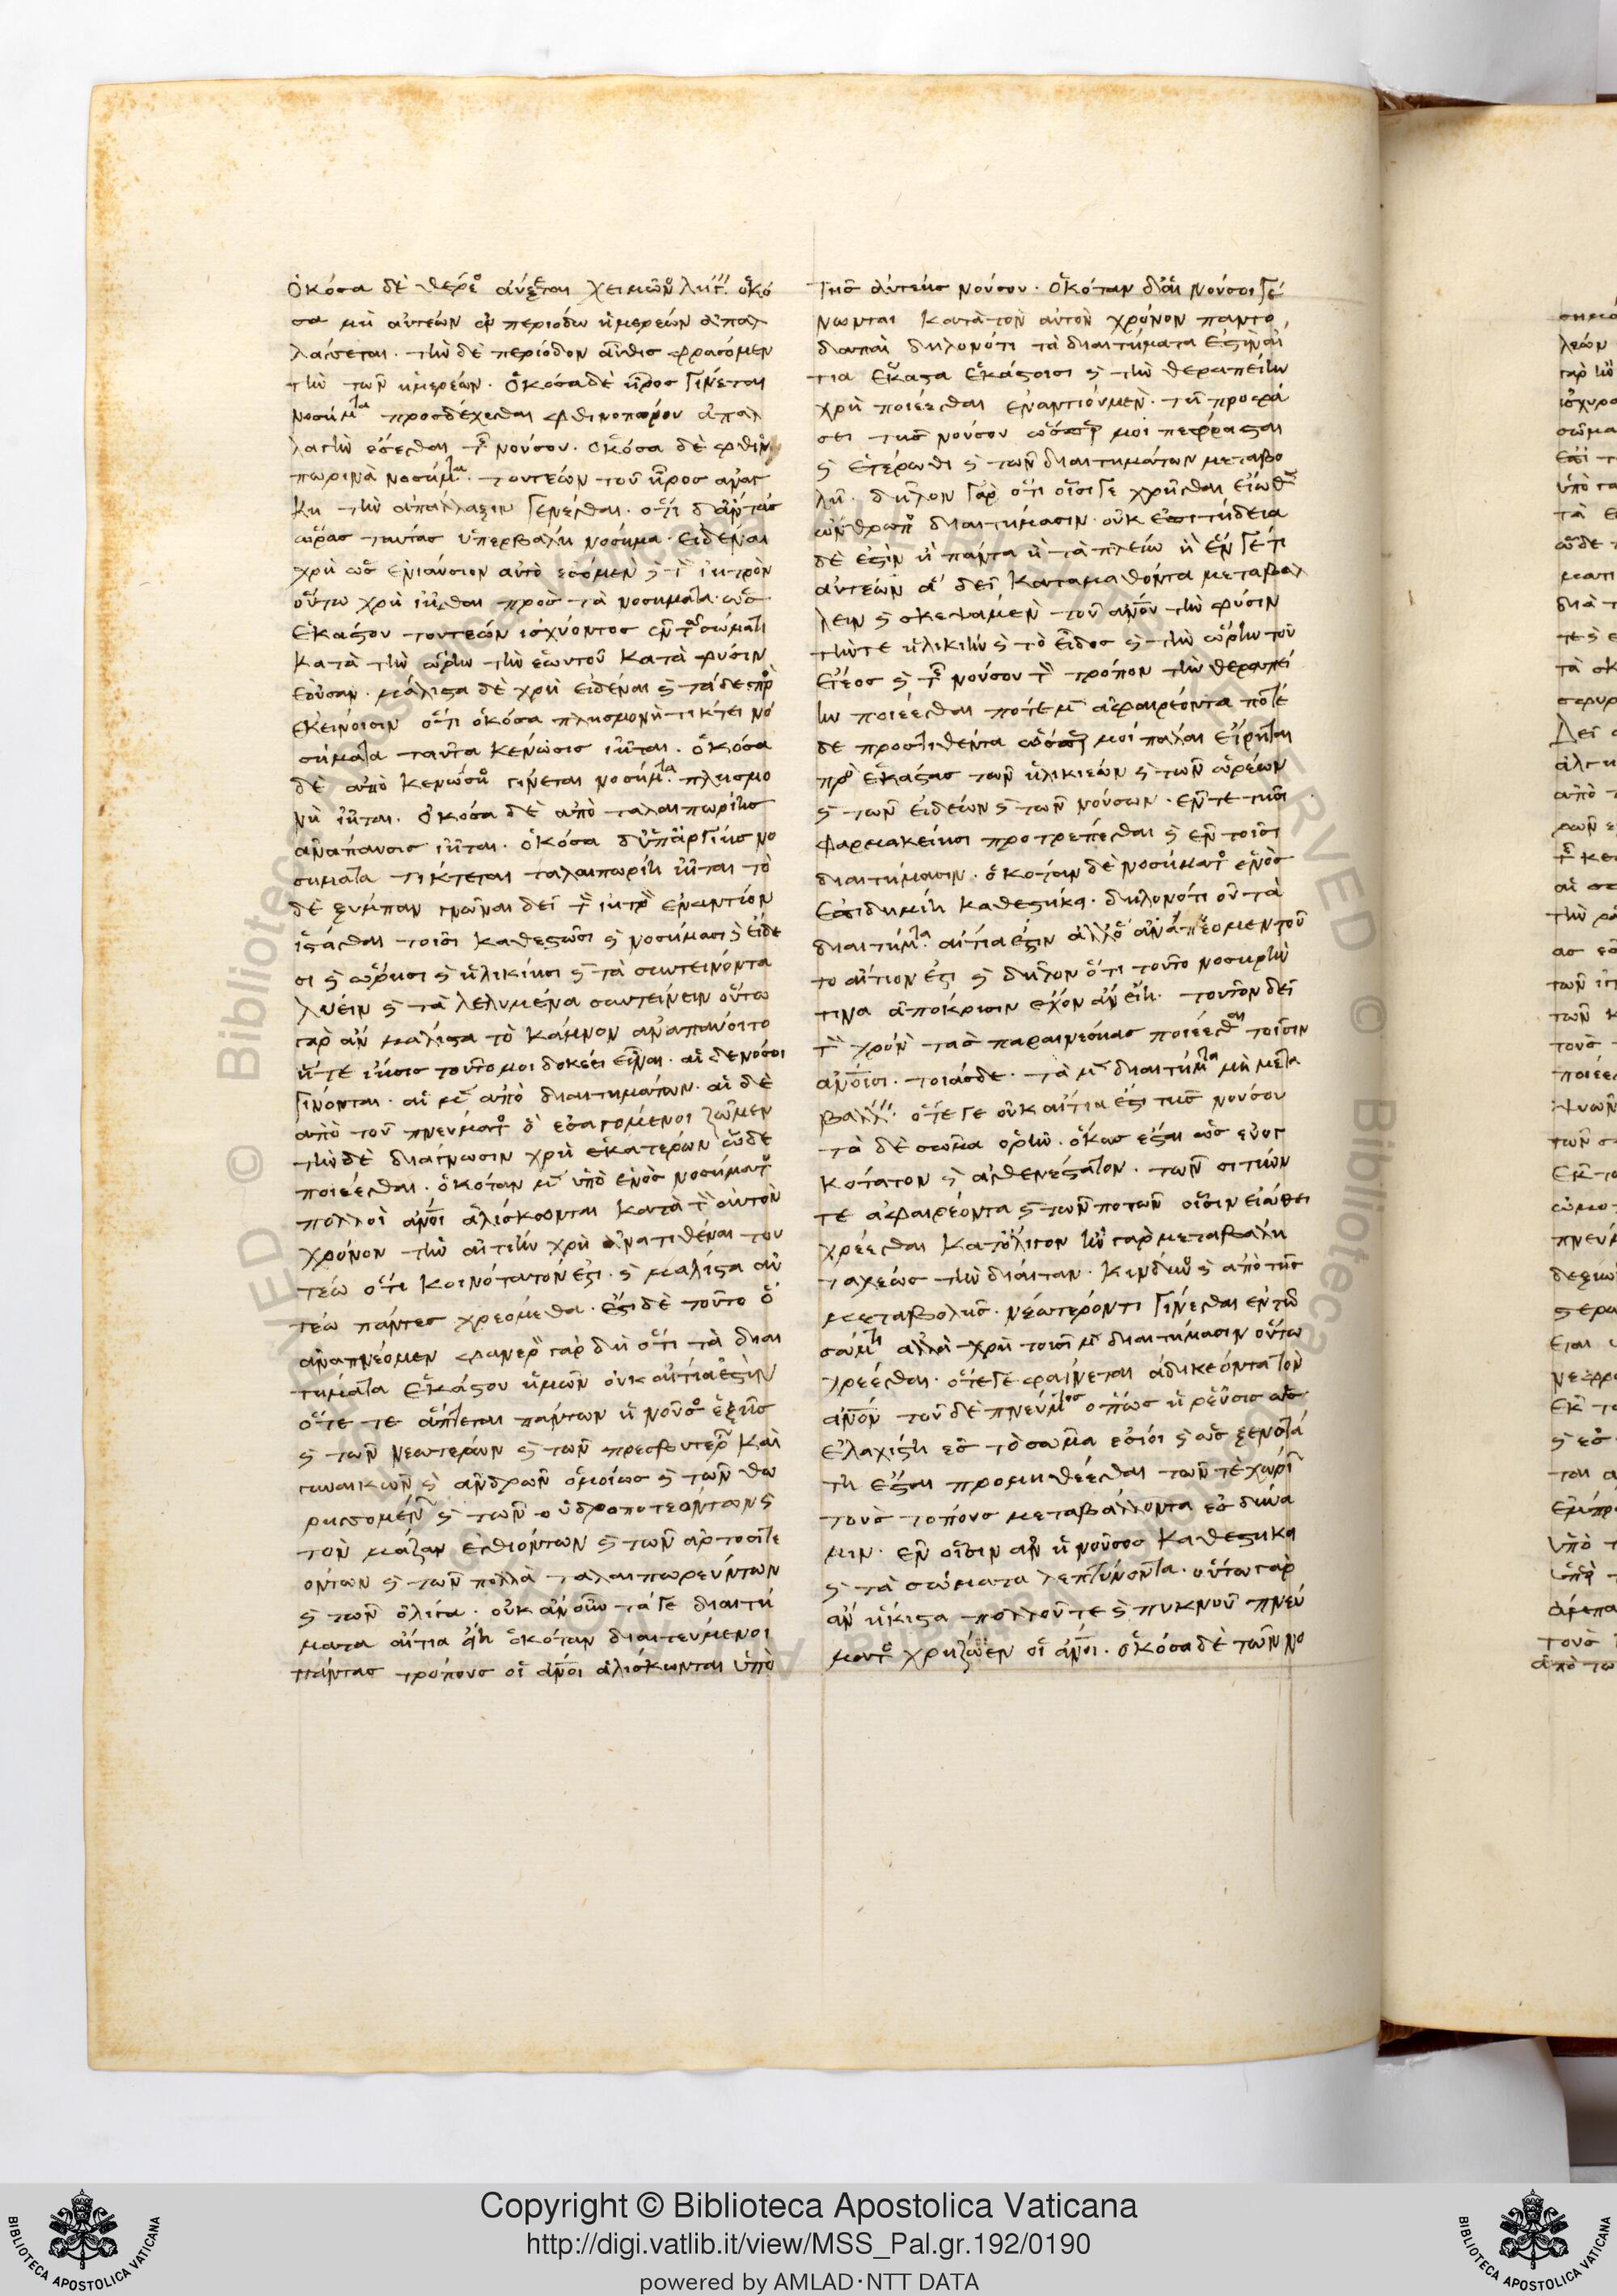 Ὁκόσα δὲ θέρε ἀύξεται χειμῶν λήγ. ὁκό
σα μὴ αὐτεῶν ἐν περιόδω ἡμερέων ἀπαλ
λάσεται. τὴν δὲ περίοδον αὖθις φράσομεν
τὴν τῶν ἡμερέων. Ὁκόσα δὲ ἦρος γίνεται
νοσήμτα προσδέχεσθαι φθινοπώρου ἀπαλ
λαγὴν ἔσεσθαι τ νούσου. ὁκόσα δὲ φθιν
πωρινὰ νοσήμτα. τουτεῶν τοῦ ἦρος ἀνάγ
κη τὴν ἀπάλλαξιν γενέσθαι. ὅτι δ' ἂν τὰς
ὥρας ταύτας ὑπερβάλη νόσημα. εἰδέναι
χρὴ ὡς ἐνιαύσιον αὐτὸ ἐσόμεν καὶ τ ἰητρὸν
οὕτω χρὴ ἰῆσθαι πρὸς τὰ νοσήματα. ὡς
ἑκάστου τουτεῶν ἰσχύοντος ἐν τ σώματι
κατὰ τὴν ὥρην τὴν ἑωυτοῦ κατὰ φύσιν
ἐοῦσαν. μάλιστα δὲ χρὴ εἰδέναι καὶ τάδε πρ
ἐκείνοισιν ὅτι ὁκόσα πλησμονὴ τίκτει νο
σήματα ταῦτα κένωσις ἰῆται. ὁκόσα
δὲ ἀπὸ κενώσι γίνεται νοσήμτα. πλησμο
νὴ ἰῆται. ὁκόσα δὲ ἀπὸ ταλαιπωρίης
ἀνάπαυσις ἰῆται. ὁκόσα δ' ὑπ' ἀργίης νο
σήματα τίκτεται ταλαιπωρίη ἰῆται τὸ
δὲ ξύμπαν γνῶναι δεῖ τ ἰητρ ἐναντίον
ἵστασθαι τοῖσι καθεστῶσι καὶ νοσήμασι καὶ εἴδε
σι καὶ ὥρησι καὶ ἡλικίησι καὶ τὰ συντείνοντα
λύειν καὶ τὰ λελυμένα συντείνειν οὕτω
γὰρ ἂν μάλιστα τὸ κάμνον ἀναπαύοιτο
ἥτε ἴησις τοῦτο μοι δοκέει εἶναι. αἱ δὲ νόσοι
γίνονται. αἱ μ ἀπὸ διαιτημάτων. αἱ δὲ
ἀπὸ τοῦ πνεύματ ὃ ἐσαγόμενοι ζῶμεν
τὴν δὲ διάγνωσιν χρὴ ἑκατέρων ὧδε
ποιέεσθαι. ὁκόταν μ ὑπὸ ἑνὸς νοσήματ
πολλοὶ ἄνοι ἁλίσκωνται κατὰ τ αὐτὸν
χρόνον τὴν αἰτίην χρὴ ἀνατιθέναι του
τέω ὅτι κοινότατόν ἐστι. καὶ μάλιστα αὐ
τέω πάντες χρεόμεθα. ἔστι δὲ τοῦτο ὃ
ἀναπνέομεν φανερ γὰρ δὴ ὅτι τὰ διαι
τήματα ἑκάστου ἡμῶν οὐκ αἴτια ἐστὶν
ὅτε τε ἅπτεται πάντων ἡ νοῦσ ἑξῆς
καὶ τῶν νεωτέρων καὶ τῶν πρεσβυτέρ καὶ
γυναικῶν καὶ ἀνδρῶν ὁμοίως καὶ τῶν θω
ρησσομέν καὶ τῶν ὑδροποτεόντων καὶ
τὸν μάζαν ἐσθιόντων καὶ τῶν ἀρτοσιτε
όντων καὶ τῶν πολλὰ ταλαιπωρεύντων
καὶ τῶν ὀλίγα. οὐκ ἂν οὖν τά γε διαιτή
ματα αἴτια εἴη ὁκόταν διαιτευμενοι
πάντας τρόπους οἱ ἄνοι ἁλίσκωνται ὑπὸ
τῆς ἀυτέης νούσου. Ὁκόταν δ' αἱ νοῦσοι γέ
νωνται κατὰ τὸν αὐτὸν χρόνον παντο
δαπαὶ δηλονότι τὰ διαιτήματα ἐστὶν αἴ
τια ἕκαστα ἑκάστοισι καὶ τὴν θεραπείην
χρὴ ποιέεσθαι ἐναντιούμεν. τῇ προφά
σει τῆς νούσου ὥσπερ μοι πέφρασται
καὶ ἑτέρωθι καὶ τῶν διαιτημάτων μεταβο
λῆ. δῆλον γὰρ ὅτι οἷσί γε χρῆσθαι εἴωθ
ὥνθρωπ διαιτήμασιν. οὐκ ἐπιτήδεια
δὲ ἐστὶν ἢ πάντα ἢ τὰ πλείω ἢ ἕν γέ τι
αὐτεῶν ἃ δεῖ καταμαθόντα μεταβαλ
λειν καὶ σκεψάμεν τοῦ ἀνου τὴν φύσιν
τήντε ἡλικίην καὶ τὸ εἶδος καὶ τὴν ὥρην τοῦ
ἔτεος καὶ τ νούσου τ τρόπον τὴν θεραπεί
ην ποιέεσθαι ποτὲ μ ἀφαιρέοντα ποτέ
δε προστιθέντα ὥσπερ μοι πάλαι εἴρηται
πρ ἑκάστας τῶν ἡλικιέων καὶ τῶν ὡρέων
καὶ τῶν εἰδέων καὶ τῶν νούσων. ἔν τε τῆσι
φαρμακείησι προτρέπεσθαι καὶ ἐν τοῖσι
διαιτήμασιν. ὁκόταν δὲ νοσήματ ἑνὸς
ἐπιδημίη καθεστήκη. δηλονότι οὐ τὰ
διαιτήμτα. αἴτια ἐστιν ἀλλ' ὃ ἀναπνέομεν τοῦ
το αἴτιον ἐστι καὶ δῆλον ὅτι τοῦτο νοσηρὴν
τινα ἀπόκρισιν ἔχον ἂν εἴη. τοῦτον δεῖ
τ χρόν τὰς παραινέσιας ποιέεσθαι τοῖσιν
ἀνοισι. τοιάσδε. τὰ μ διαιτήμτα μὴ μετα
βάλλ. ὅτε γε οὐκ αἴτια ἐστι τῆς νούσου
τὰ δὲ σῶμα ὁρῆν. ὅκως ἔσται ὡς εὐογ
κότατον καὶ ἀσθενέστατον. τῶν σιτίων
τε ἀφαιρέοντα καὶ τῶν ποτῶν οἷσιν εἰώθει
χρέεσθαι κατ' ὀλίγον ἢν γὰρ μεταβάλη
ταχέως τὴν δίαιταν. κίνδυν καὶ ἀπὸ τῆς
μεταβολῆς. νεώτερόν τι γίνεσθαι ἐν τῶ
σώμτι ἀλλὰ χρὴ τοῖσι μ διαιτήμασιν οὕτω
χρέεσθαι. ὅτε γε φαίνεται ἀδικέοντα τὸν
ἄνον τοῦ δὲ πνεύμτος ὅπως ἡ ῥεῦσις ὡς
ἐλαχίστη ἐς τὸ σῶμα ἐσίοι καὶ ὡς ξενωτά
τη ἔσται προμηθέεσθαι τῶν τε χωρί
τοὺς τόπους μεταβάλλοντα ἐς δύνα
μιν. ἐν οἷσιν ἂν ἡ νοῦσος καθεστήκη
καὶ τὰ σώματα λεπτύνοντα. οὕτω γὰρ
ἂν ἥκιστα πολλοῦ τε καὶ πυκνοῦ πνεύ
ματ χρηίζωεν οἱ ἄνοι. ὁκόσα δὲ τῶν νο
Copyright © Biblioteca Apostolica Vaticana
http://digi.vatlib.it/view/MSS_Pal.gr.192/0190
powered by AMLAD·NTT DATA
BIBLIOTECA APOSTOLICA VATICANA
BIBLIOTECA APOSTOLICA VATICANA